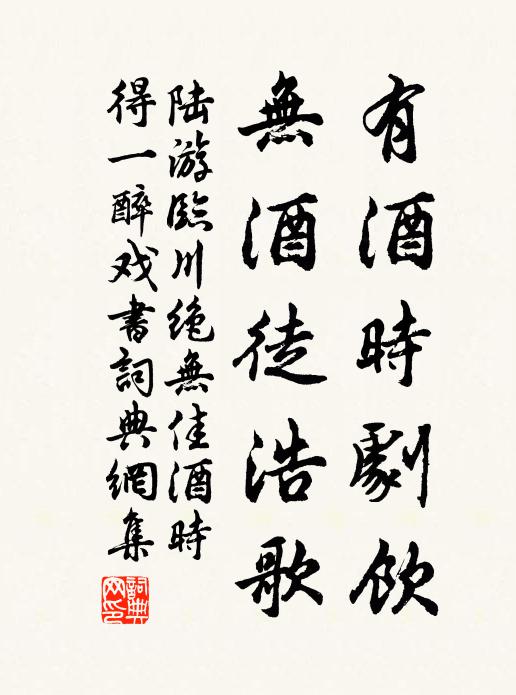 有酒時劇飲
無酒徒浩歌
陆游臨川绝無佳酒時
得一醉戏書詞典網集
詞典
网印